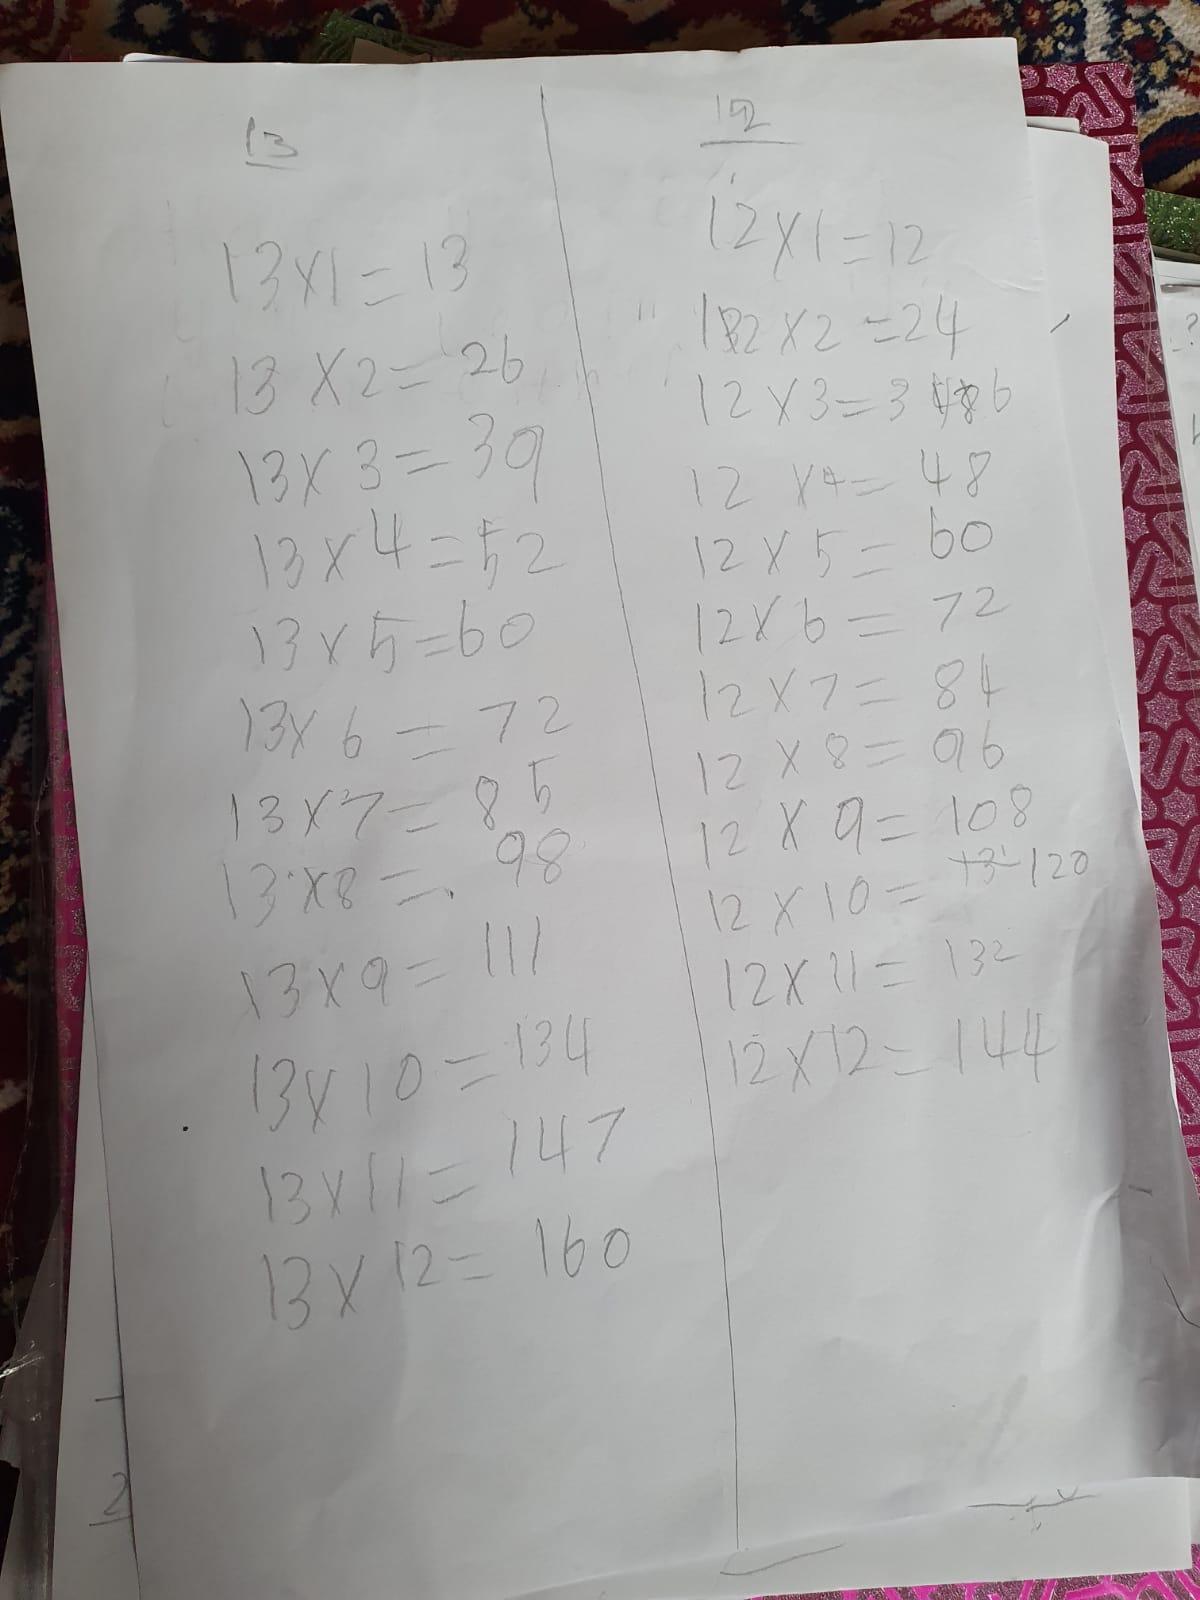 13
13x1=13
13 x2= 26
13x 3=39
13x4=52
13x5=60
13x 6 = 72
13x7= 85
13x8= 98
13x9= 111
13x10=134
13x11= 147
13x12= 160
12
12x1=12
12x2=24
12x3=36
12 x4= 48
12x5= 60
12x6= 72
12x7= 84
12 x8= 96
12 x 9= 108
12x10= 13 120
12x11= 132
12x12= 144
2
?